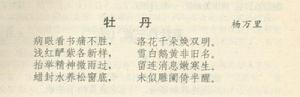 牡丹
杨万里
病眼看书痛不胜，洛花千朵焕双明。
浅红酽紫各新样，雪白鹅黄非旧名。
抬举精神微雨过，留连消息嫩寒生。
蜡封水养松窗底，未似雕阑倚半醒。